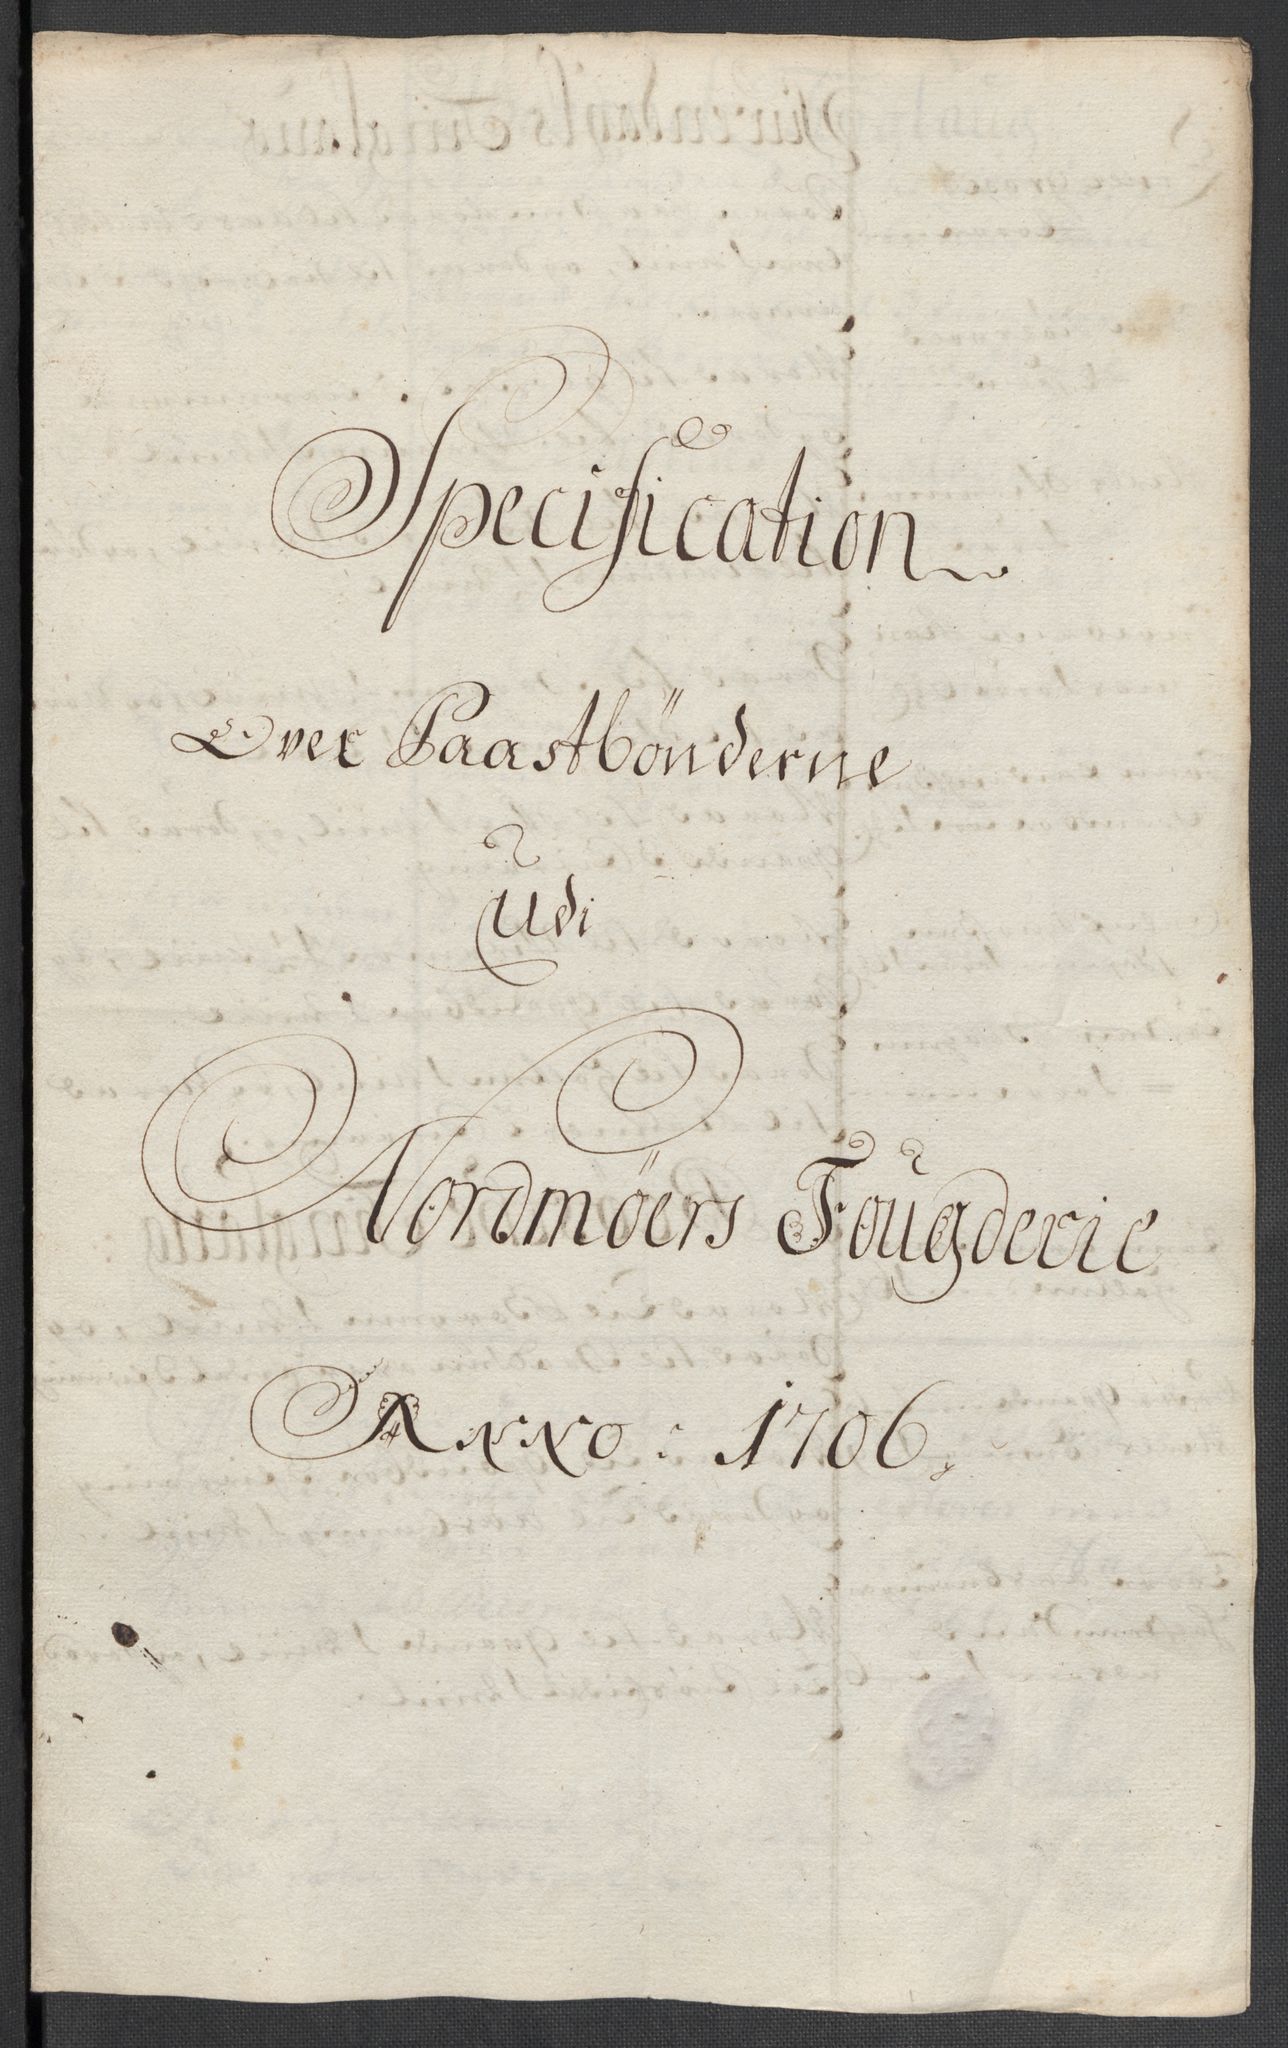 Specification
Over Paastbönderne
Udi
Nordmöers Fougderie
Anno: 1706.